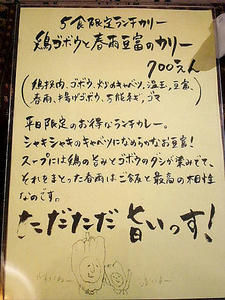 5食限定ランチカリー
鶏ゴボウと春雨豆富のカリー
700えん
(鶏挽肉、ゴボウ、炒めキャベツ、温玉、豆富、
春雨、揚げゴボウ、万能ネギ、ゴマ)
平日限定のお得なランチカレー。
シャキシャキのキャベツになめらかなお豆富!
スープには鶏の旨みとゴボウのダシが染みでて、
それをまとった春雨はご飯と最高の相性
なのです。
ただただ 旨いっす!